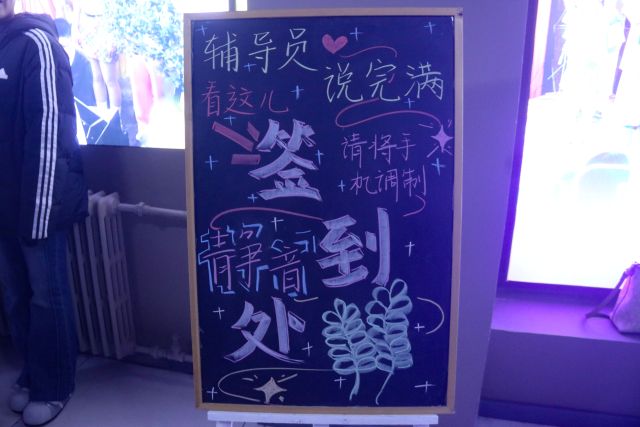 辅导员
说完满
看这儿
签
请将手
机调制
静音
到
处